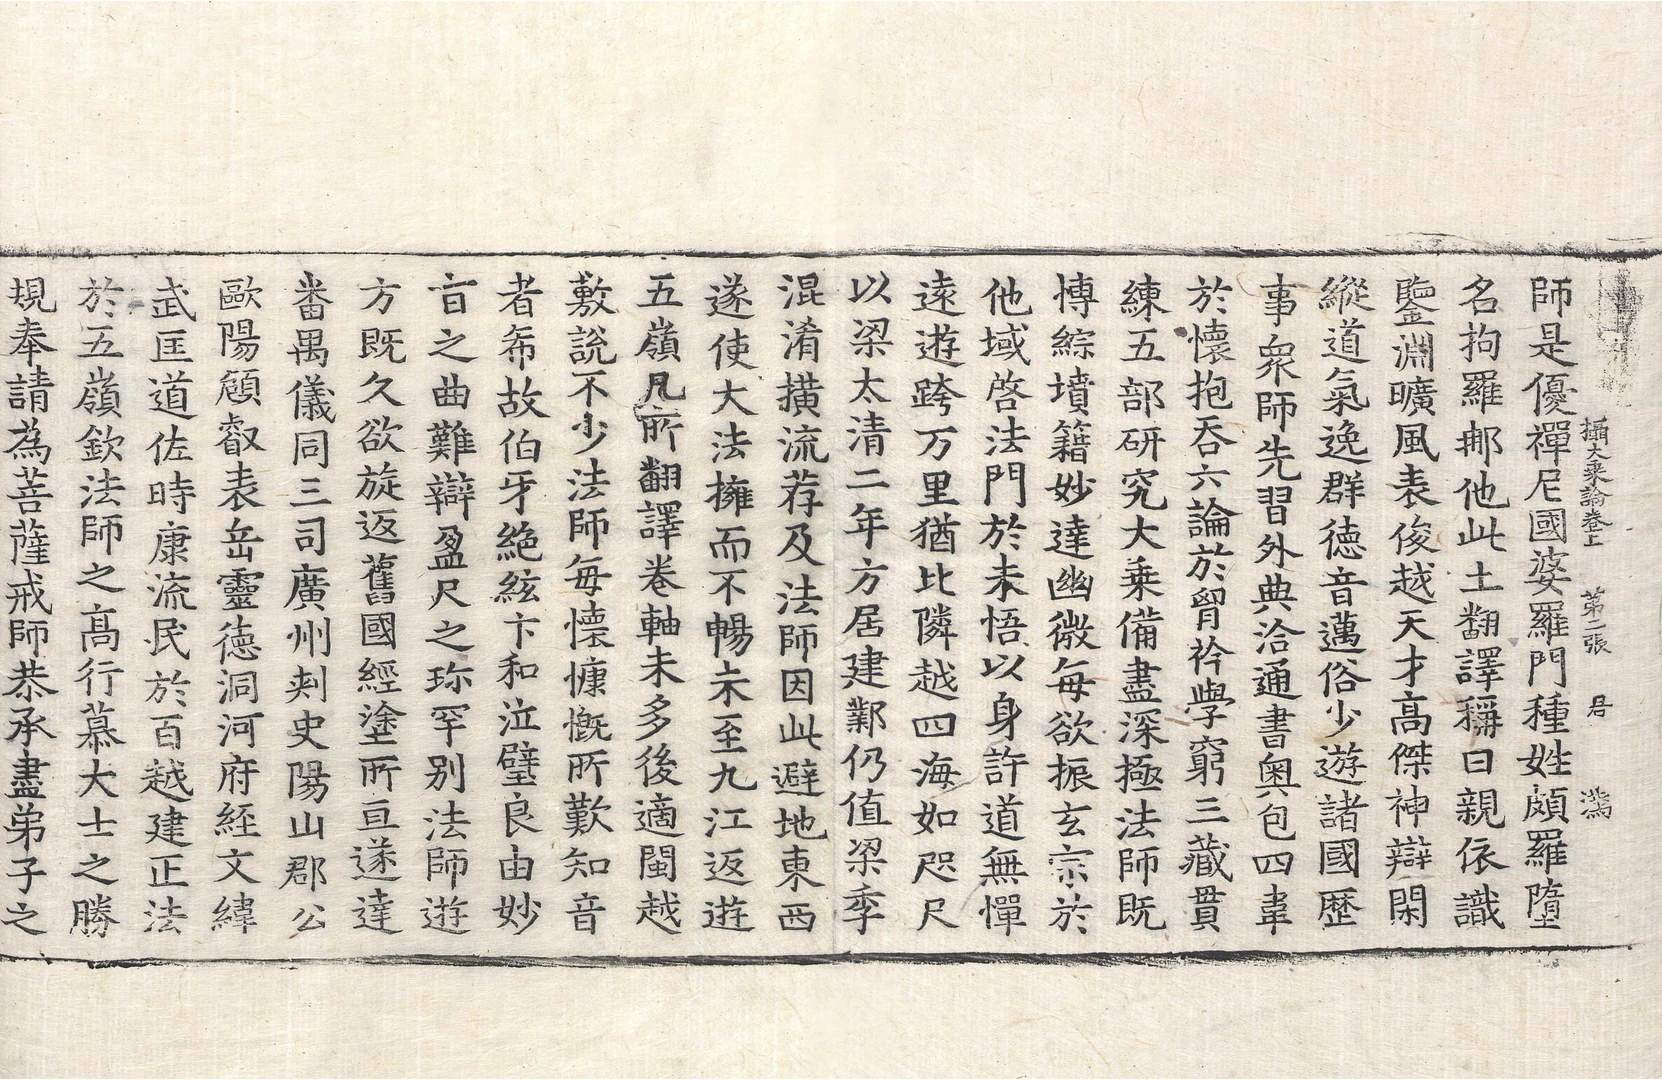 攝大乘論卷上 第二張 君
師是優禪尼國婆羅門種姓頗羅墮
名拘羅那他此土翻譯稱曰親依識
鑒淵曠風表俊越天才高傑神辯閑
縱道氣逸群德音邁俗少遊諸國歷
事衆師先習外典洽通書奧包四韋
於懷抱吞六論於胷衿學窮三藏貫
練五部研究大乘備盡深極法師既
博綜墳籍妙達幽微每欲振玄宗於
他域啓法門於未悟以身許道無憚
遠遊跨万里猶比隣越四海如咫尺
以梁太清二年方居建鄴仍值梁季
混淆橫流荐及法師因此避地東西
遂使大法擁而不暢未至九江返遊
五嶺凡所翻譯卷軸未多後適閩越
敷說不少法師每懷慷慨所歎知音
者希故伯牙絶絃卞和泣璧良由妙
旨之曲難辯盈尺之珎罕別法師遊
方既久欲旋返舊國經塗所亘遂達
番禺儀同三司廣州刾史陽山郡公
歐陽頠叡表岳靈德洞河府經文緯
武匡道佐時康流民於百越建正法
於五嶺欽法師之高行慕大士之勝
規奉請爲菩薩戒師恭承盡弟子之